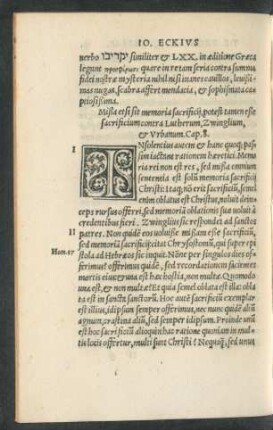 IO. ECKIVS
verbo יקריבו similiter & LXX. in aditione Græca
legunt προσφέρει: quare in re tam seria contra summa
fidei nostræ mysteria nihil nisi inanes cauillos, leuissi-
mas nugas, scabra affert mendacia, & sophismata ca-
ptiosissima.
Missa etsi sit memoria sacrificij, potest tamen esse
sacrificium contra Lutherum, Zwinglium,
& Vrbanum. Cap. 8.
I
INsolescius autem & hanc quoq; pas-
sim iactant rationem hæretici. Memo
ria rei non est res, sed missa omnium
sententia est solũ memoria sacrificij
Christi: itaq; nõ erit sacrificiũ, semel
enim oblatus est Christus, noluit dein-
ceps rursus offerri, sed memoriã oblationis suæ voluit à
credentibus fieri. Zwinglius sic respondet ad sanctos
II
patres. Non quidẽ eos voluisse missam esse sacrificiũ,
sed memoriã sacrificij: citat Chrysostomũ, qui super epi
Hom. 17
stola ad Hebræos sic inquit. Nõne per singulos dies of-
ferimus? offerimus quidẽ, sed recordationem facientes
mortis eius: & una est hæc hostia, non multæ. Quomodo
una est, & non multæ? Et quia semel oblata est illa: obla
ta est in sanctũ sanctorũ. Hoc autẽ sacrificiũ exemplar
est illius, idipsum semper offerimus, nec nunc quidẽ aliũ
agnum, crastina aliũ, sed semper idipsum. Proinde unũ
est hoc sacrificiũ: alioquin hac ratione quoniam in mul-
tis locis offertur, multi sunt Christi? Nequaq̃, sed unus